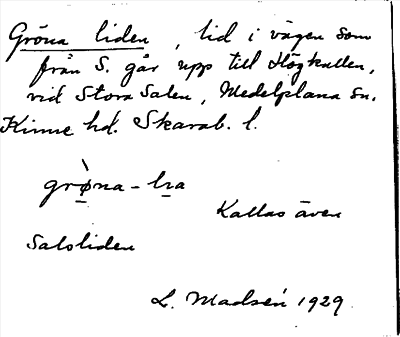 Gröna liden, lid i vägen som
från S. går upp till Högkullen,
vid Stora Salen, Medelplana sn.
Kinne hd. Skarab. l.
grø̀na-lıa
Kallas även
Salsliden
L. Madsén 1929.